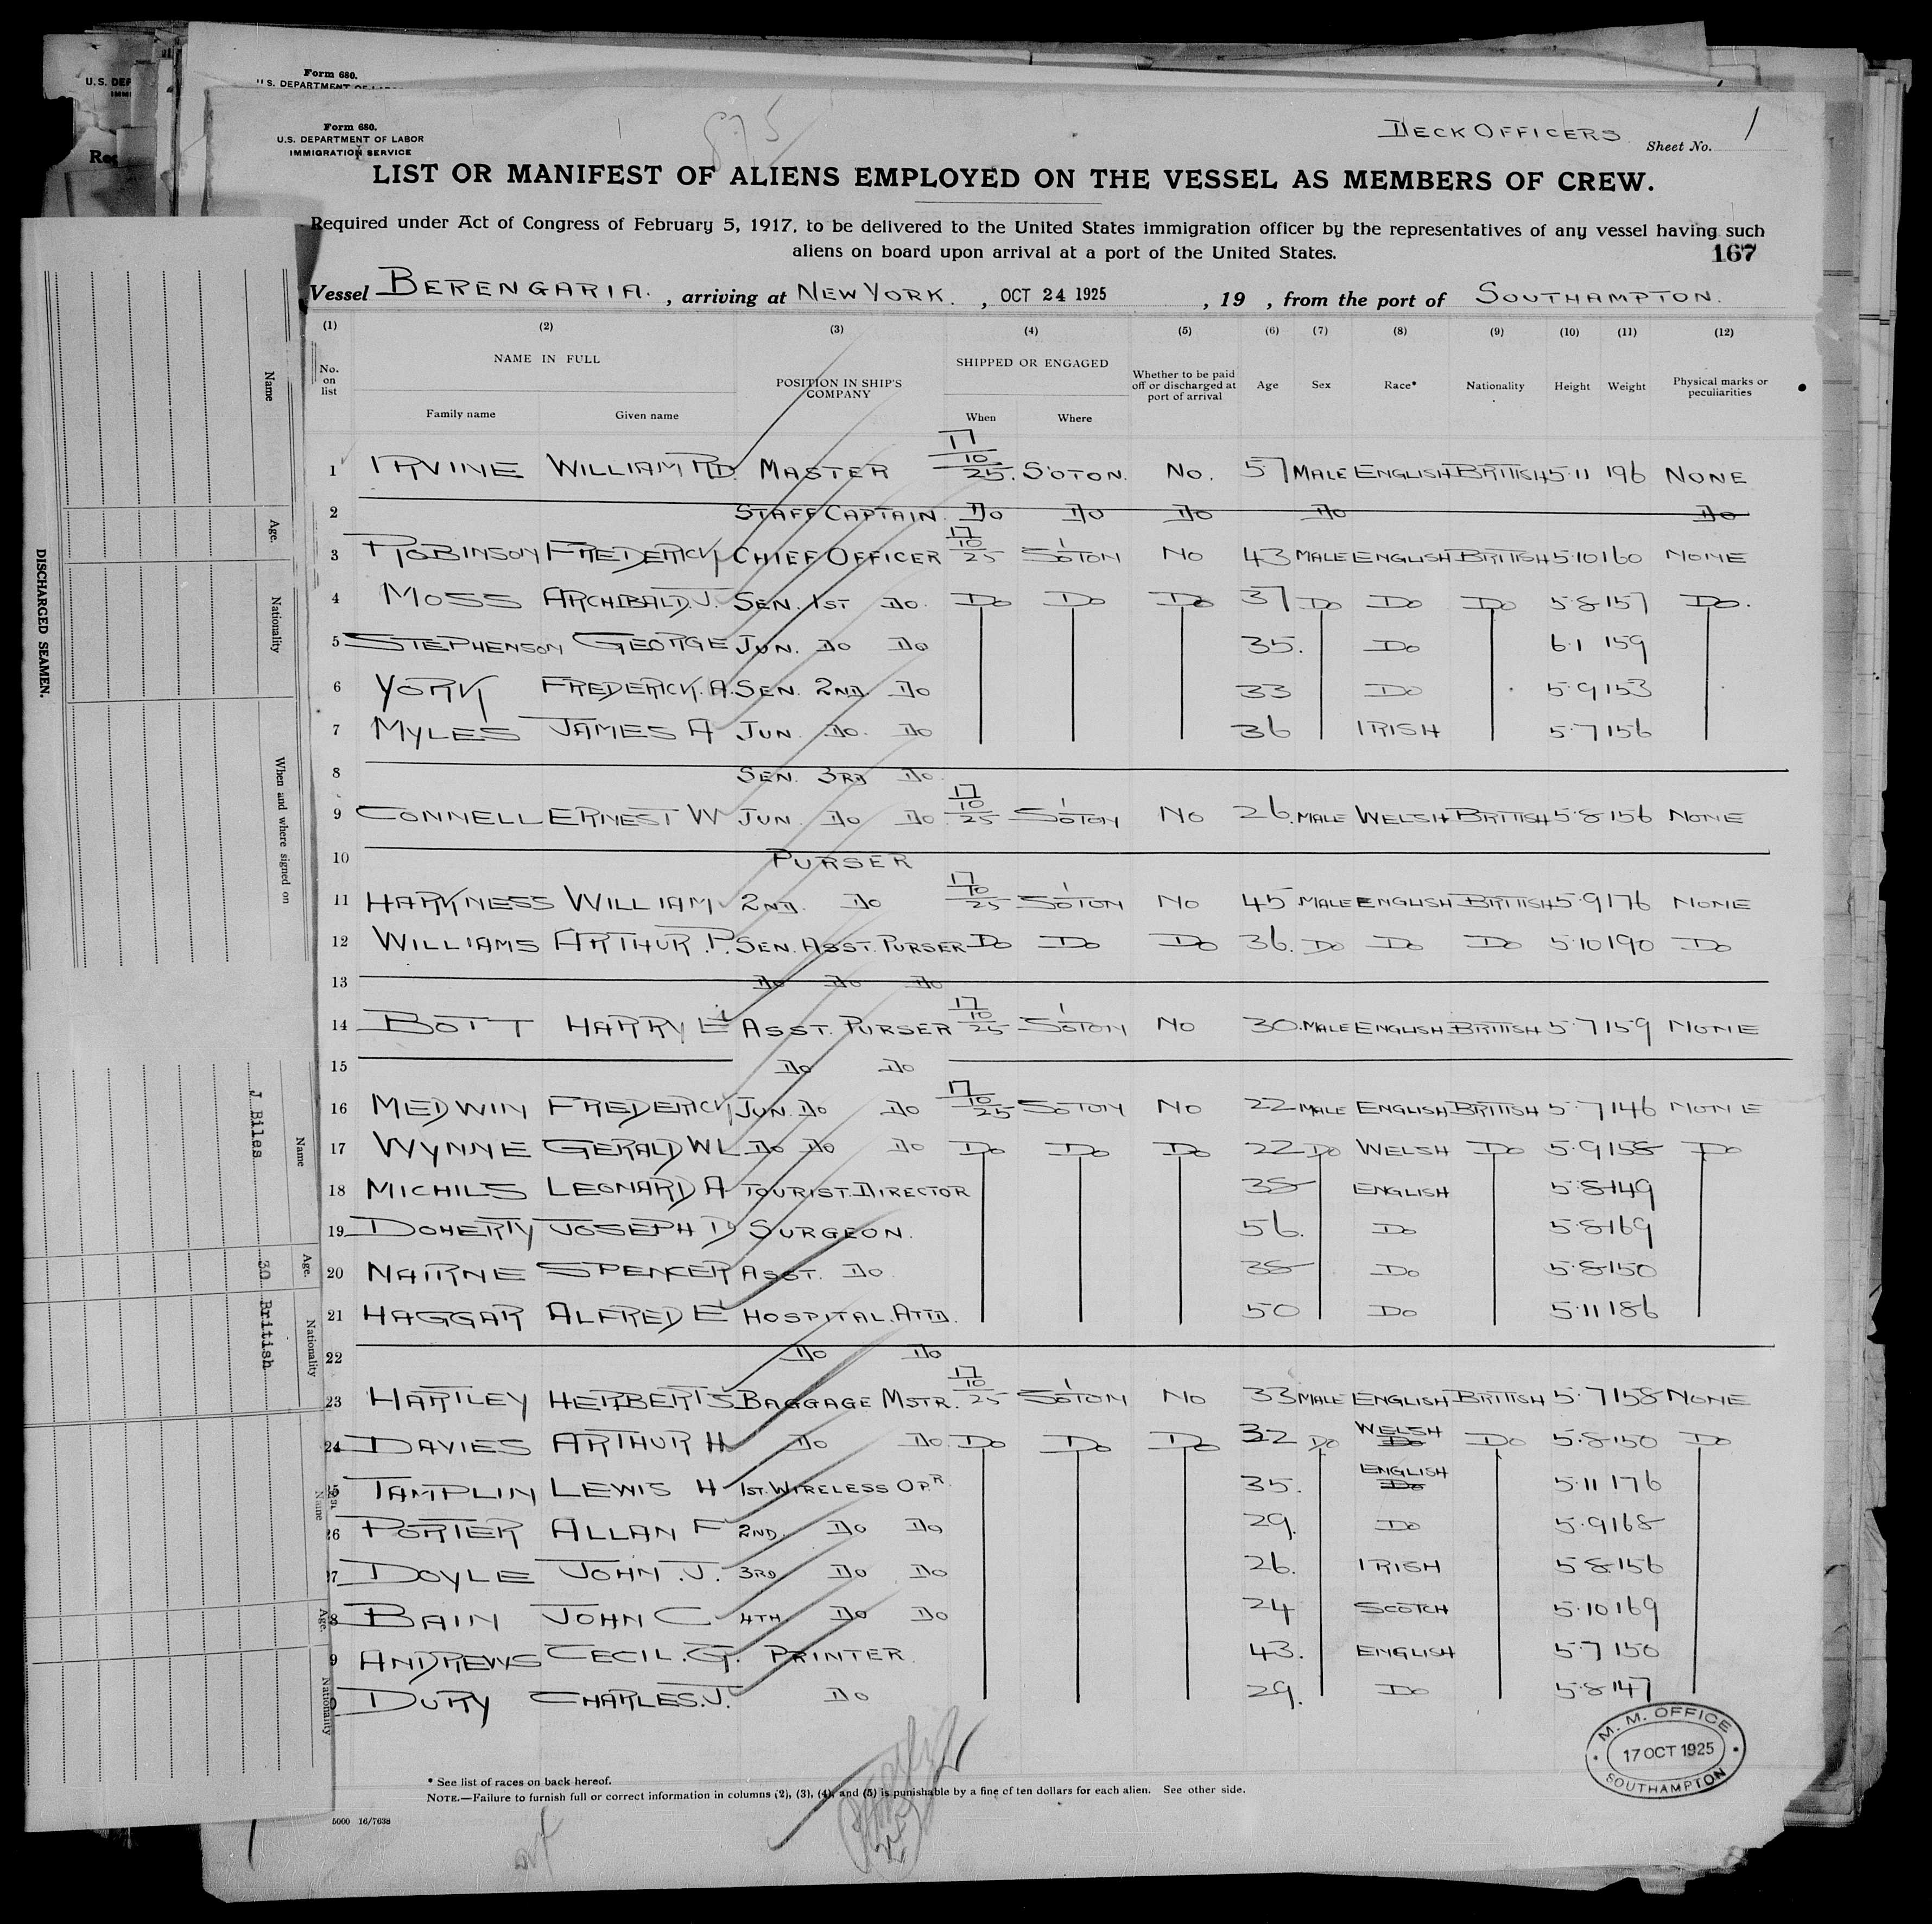 U.S. DEP
IMMI
Form 680.
U.S. DEPARTMENT OF LABOR
Reg
Form 680.
U.S. DEPARTMENT OF LABOR
IMMIGRATION SERVICE
875
DECK OFFICERS
Sheet No. 1
LIST OR MANIFEST OF ALIENS EMPLOYED ON THE VESSEL AS MEMBERS OF CREW.
Required under Act of Congress of February 5, 1917, to be delivered to the United States immigration officer by the representatives of any vessel having such
aliens on board upon arrival at a port of the United States.
167
Vessel BERENGARIA. , arriving at NEW YORK. , OCT 24 1925 , 19 , from the port of SOUTHAMPTON.
(1) (2) (3) (4) (5) (6) (7) (8) (9) (10) (11) (12)
No. on list NAME IN FULL Family name Given name POSITION IN SHIP'S COMPANY SHIPPED OR ENGAGED When Where Whether to be paid off or discharged at port of arrival Age Sex Race* Nationality Height Weight Physical marks or peculiarities
1 IRVINE WILLIAM RD. MASTER 17/10/25. S'OTON. NO. 57 MALE ENGLISH BRITISH 5·11 196 NONE
2 STAFF CAPTAIN DO DO DO DO DO
3 ROBINSON FREDERICK CHIEF OFFICER 17/10/25 S'OTON NO 43 MALE ENGLISH BRITISH 5·10 160 NONE
4 MOSS ARCHIBALD.J. SEN. 1ST DO. DO DO DO 37 DO DO DO 5·8 157 DO.
5 STEPHENSON GEORGE JUN. DO DO 35. DO 6·1 159
6 YORK FREDERICK.A. SEN. 2ND. DO 33 DO 5·9 153
7 MYLES JAMES A JUN. DO. DO 36 IRISH 5·7 156
8 SEN. 3RD DO.
9 CONNELL ERNEST W JUN. DO DO 17/10/25 S'OTON NO 26. MALE WELSH BRITISH 5·8 156 NONE
10 PURSER
11 HARKNESS WILLIAM 2ND. DO 17/10/25 S'OTON NO 45 MALE ENGLISH BRITISH 5·9 176 NONE
12 WILLIAMS ARTHUR.P. SEN. ASST. PURSER DO DO DO 36. DO DO DO 5·10 190 DO
13 DO DO DO
14 BOTT HARRY E ASST. PURSER 17/10/25 S'OTON NO 30. MALE ENGLISH BRITISH 5·7 159 NONE
15 DO DO
16 MEDWIN FREDERICK JUN. DO DO 17/10/25 SOTON NO 22 MALE ENGLISH BRITISH 5·7 146 NONE
17 WYNNE GERALD W L DO DO DO DO DO DO 22 DO WELSH DO 5·9 158 DO
18 MICHILS LEONARD A TOURIST. DIRECTOR 38 ENGLISH 5·8 149
19 DOHERTY JOSEPH D SURGEON. 56. DO 5·8 169
20 NAIRNE SPENCER ASST. DO 38 DO 5·8 150
21 HAGGAR ALFRED E HOSPITAL. ATTD. 50 DO 5·11 186
22 DO DO
23 HARTLEY HERBERT S BAGGAGE MSTR. 17/10/25 S'OTON NO 33 MALE ENGLISH BRITISH 5·7 158 NONE
24 DAVIES ARTHUR H DO DO. DO DO DO 32 DO WELSH DO DO 5·8 150 DO
25 TAMPLIN LEWIS H 1ST. WIRELESS OPR. 35. ENGLISH DO 5·11 176
26 PORTER ALLAN F 2ND. DO DO 29. DO 5·9 168
7 DOYLE JOHN.J. 3RD DO DO 26. IRISH 5·8 156
8 BAIN JOHN C 4TH. DO DO 24 SCOTCH 5·10 169
9 ANDREWS CECIL.G. PRINTER. 43. ENGLISH 5·7 150
0 DURY CHARLES.J. DO 29. DO 5·8 147
M. M. OFFICE
17 OCT 1925
SOUTHAMPTON
* See list of races on back hereof.
NOTE.—Failure to furnish full or correct information in columns (2), (3), (4), and (5) is punishable by a fine of ten dollars for each alien. See other side.
5000 16/7638
DISCHARGED SEAMEN.
Name
Age.
Nationality
When and where signed on
Name
J Biles
Age.
30
Nationality
British
Name
Age.
Nationality